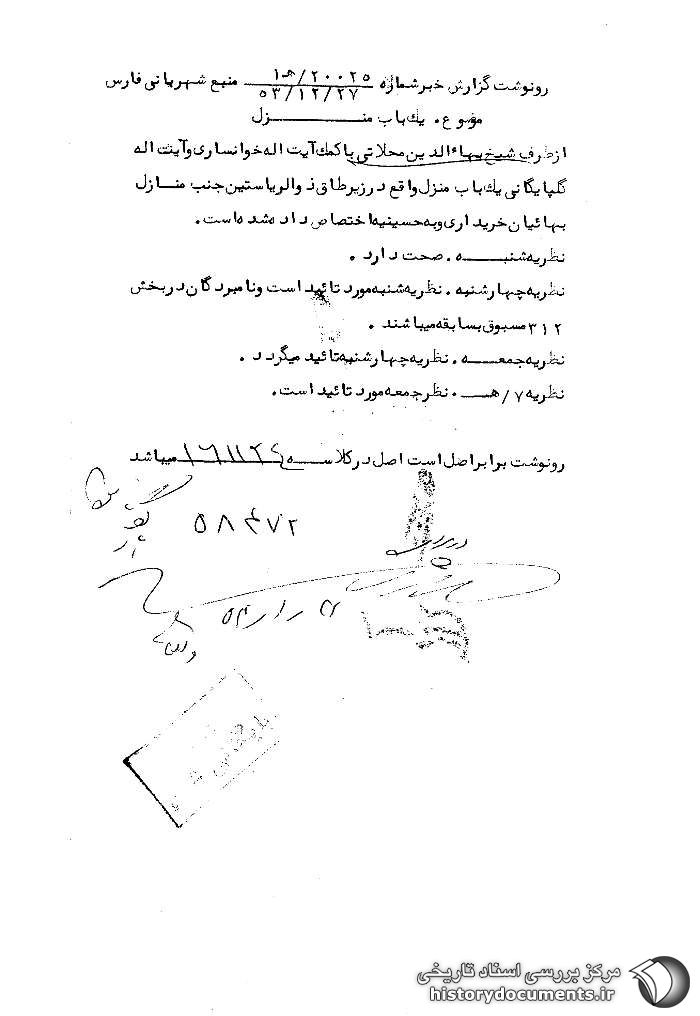 رونوشت گزارش خبر شماره ۲۰۰۲۵/هـ۱ منبع شهربانی فارس
۵۳/۱۲/۲۷
موضوع . یك باب منـــــــزل
از طرف شیخ بهاءالدین محلاتی با كمك آیت اله خوانساری و آیت اله
گلپایگانی یك باب منزل واقع در زیر طاق ذوالریاستین جنب منــازل
بهائیان خریداری و به حسینیه اختصاص داده شده است .
نظریه شنبـــــه . صحت دارد .
نظریه چهارشنبه . نظریه شنبه مورد تائید است و نامبردگان در بخش
۳۱۲ مسبوق بسابقه میباشند .
نظریه جمعــــه . نظریه چهارشنبه تائید میگردد .
نظریه ۷/هـــ . نظر جمعه مورد تائید است .
رونوشت برابر اصل است اصل در كلاســـه میباشد
۵۸۴۷۲
مرکز بررسی اسناد تاریخی
historydocuments.ir